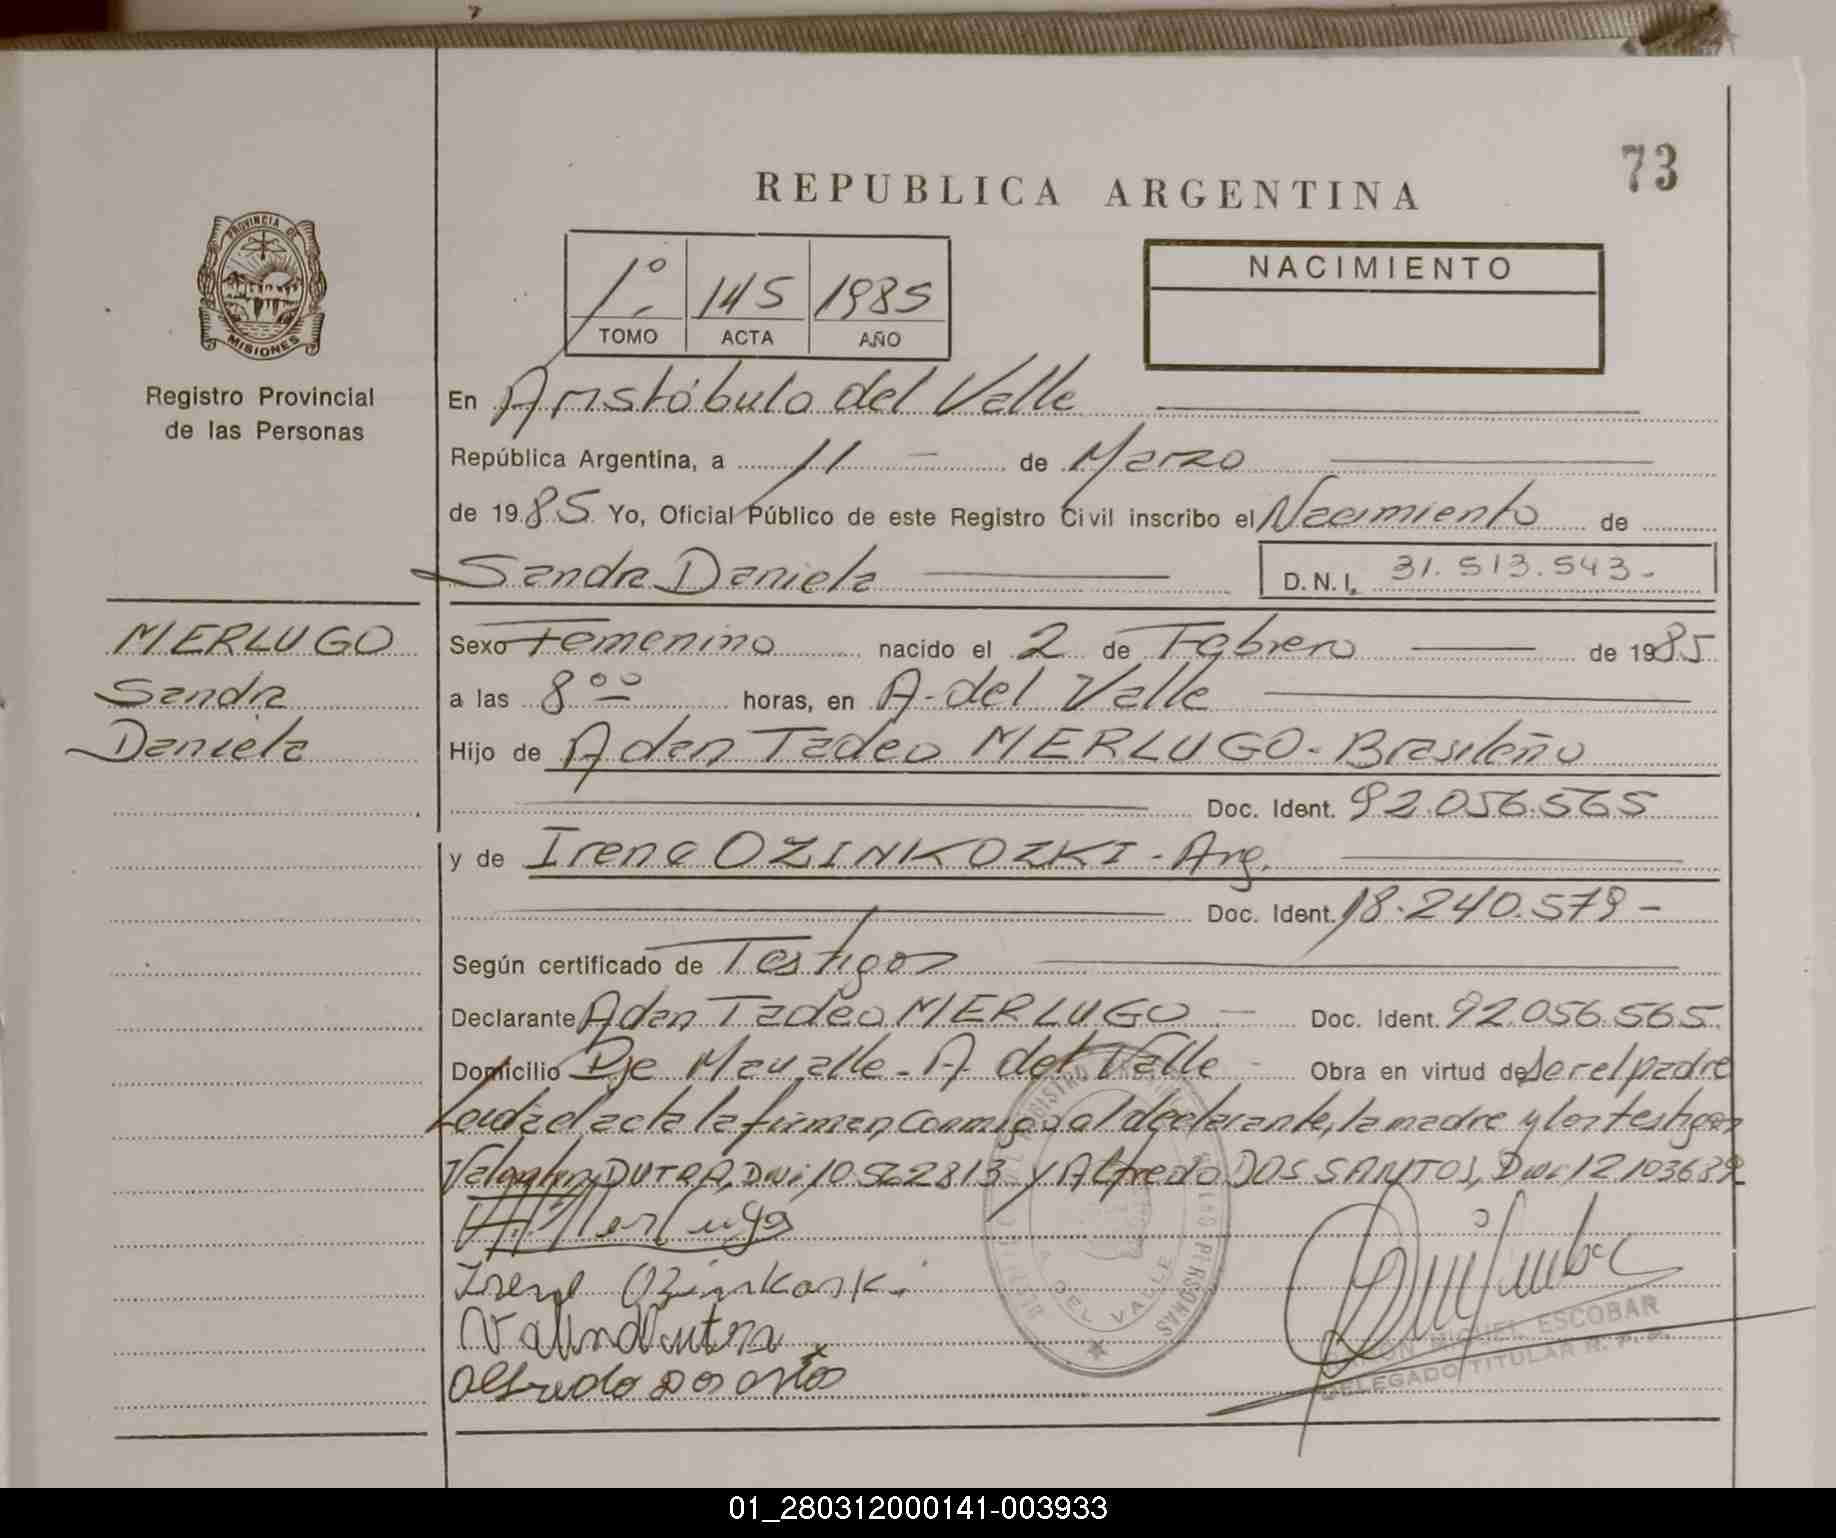 73
REPUBLICA ARGENTINA
PROVINCIA DE
MISIONES
Registro Provincial
de las Personas
1º 145 1985
TOMO ACTA AÑO
NACIMIENTO
En Aristóbulo del Valle
República Argentina, a 11 - de Marzo
de 1985 Yo, Oficial Público de este Registro Civil inscribo el Nacimiento de
Sandra Daniela D.N.I. 31.513.543-
MERLUGO
Sandra
Daniela
Sexo Femenino nacido el 2 de Febrero de 1985
a las 8 00 horas, en A. del Valle
Hijo de Adan Tadeo MERLUGO - Brasileño
Doc. Ident. 92.056.565
y de Irene OZINKOZKI - Arg.
Doc. Ident. 18.240.579 -
Según certificado de Testigos
Declarante Adan Tadeo MERLUGO - Doc. Ident. 92.056.565
Domicilio Pje Mavalle - A. del Valle - Obra en virtud de ser el padre
Leida el acta la firman conmigo el declarante, la madre y los testigos
Valentin DUTRA, Dni: 10562813 y Alfredo DOS SANTOS, Dni: 12103632
Merlugo
Irene Ozinkoski
Alfredo Dos
DEL VALLE
MIGUEL ESCOBAR
DELEGADO TITULAR R. P. P.
01_280312000141-003933